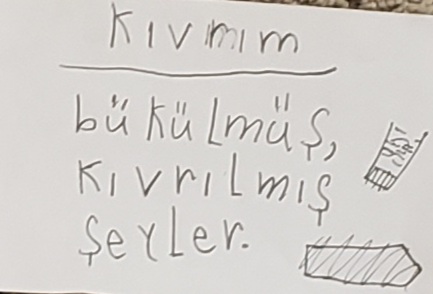 kıvmım
bükülmüş,
kıvrılmış
şeyler.